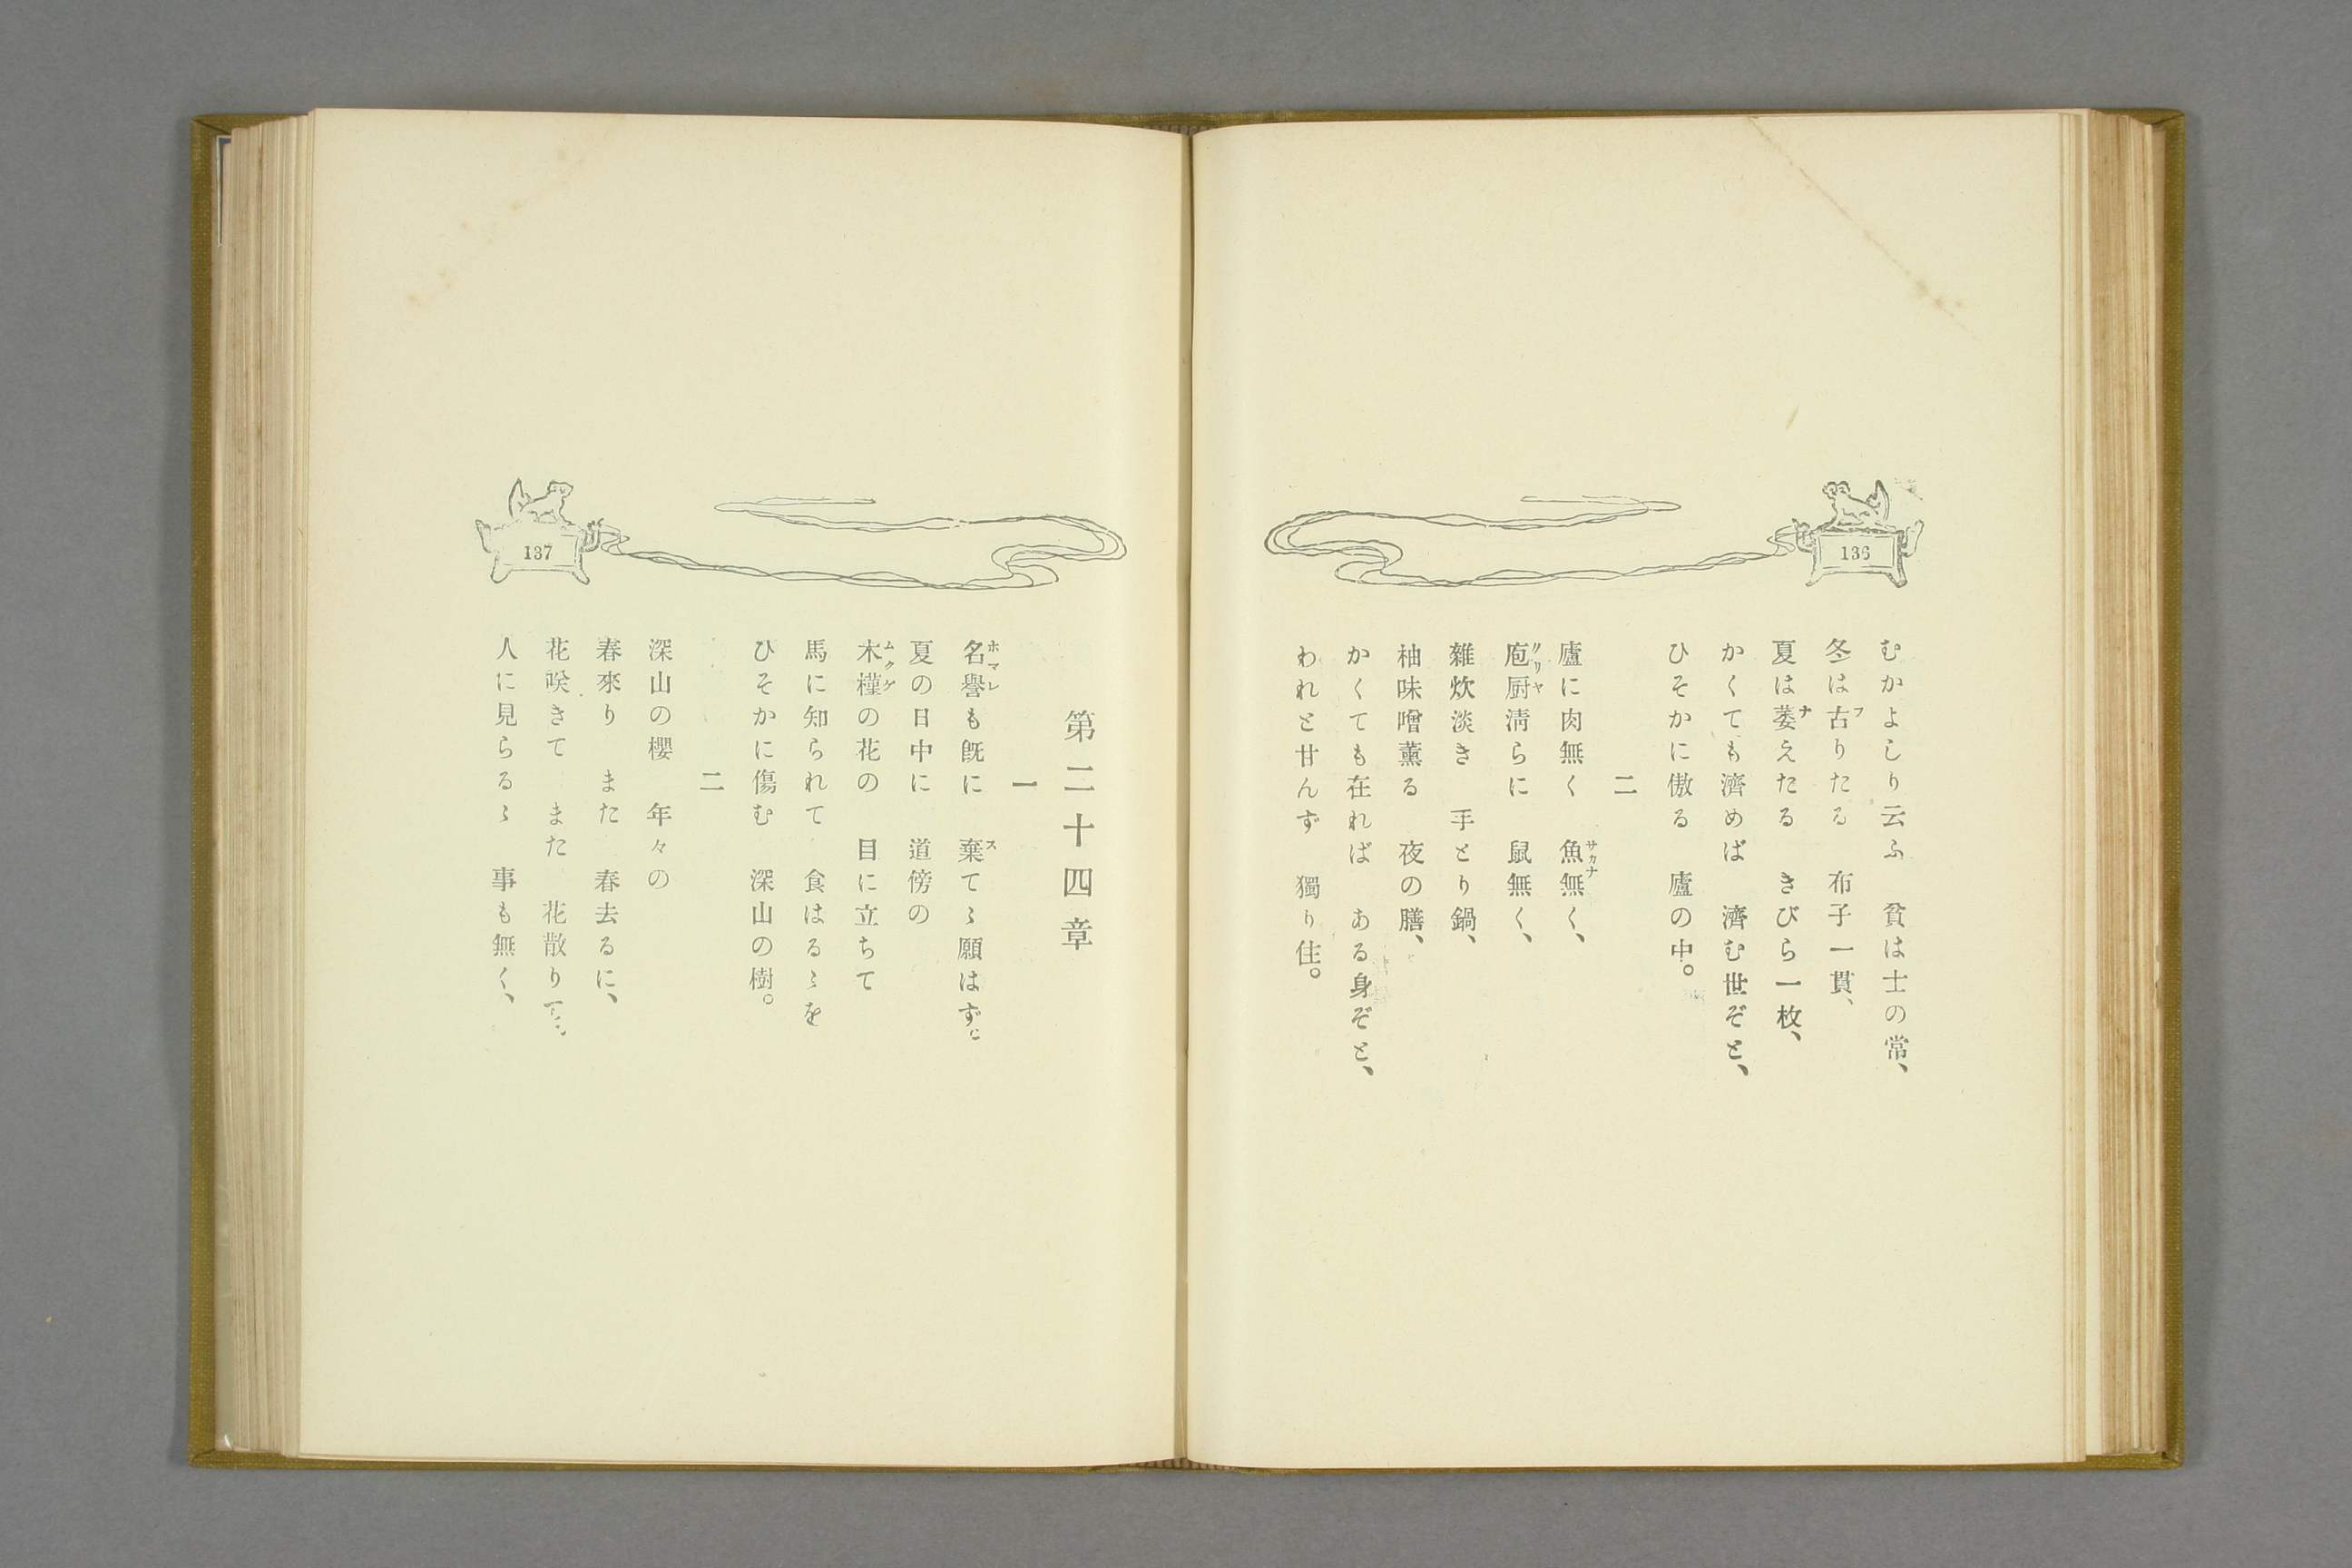 136
むかよしり云ふ　貧は士の常、
冬は古りたる　布子一貫、
夏は萎えたる　きびら一枚、
かくても濟めば　濟む世ぞと、
ひそかに傲る　廬の中。
二
廬に肉無く　魚無く、
庖厨淸らに　鼠無く、
雜炊淡き　手とり鍋、
柚味噌薰る　夜の膳、
かくても在れば　ある身ぞと、
われと甘んず　獨り住。
137
第二十四章
一
名譽も旣に　棄てゝ願はず。
夏の日中に　道傍の
木槿の花の　目に立ちて
馬に知られて　食はるゝを
ひそかに傷む　深山の樹。
二
深山の櫻　年々の
春來り　また　春去るに、
花咲きて　また　花散り
人に見らるゝ　事も無く、